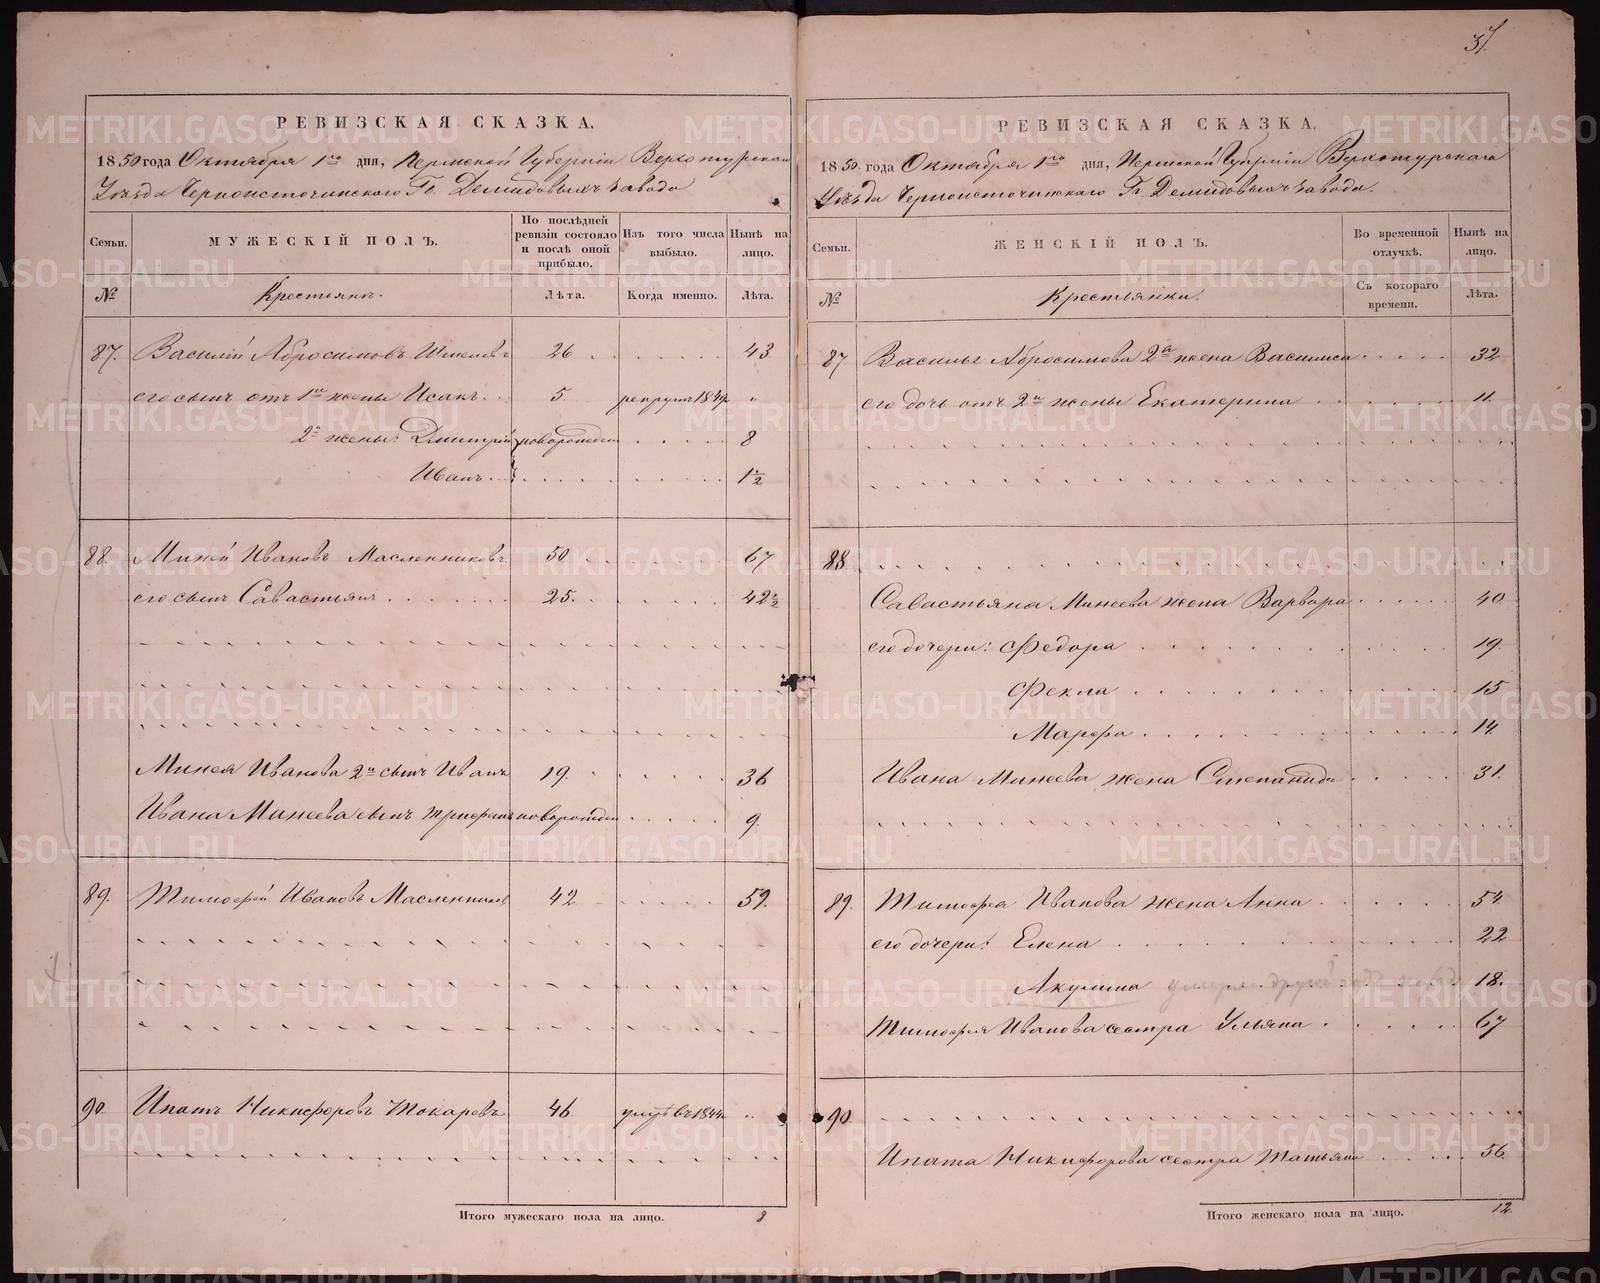 37.
РЕВИЗСКАЯ СКАЗКА.
1850 года Октября 1го дня, Пермской Губерніи Верхотурскаго
Уѣзда Черноисточинскаго Гг. Демидовыхъ завода
Семьи. МУЖЕСКІЙ ПОЛЪ. По послѣдней ревизіи состояло и послѣ оной прибыло. Изъ того числа выбыло. Нынѣ на лицо.
№ Крестьянъ. Лѣта. Когда именно. Лѣта.
87. Василій Абросимовъ 26 43
его сынъ отъ 1й жены Исакъ 5. рекрутъ 1849 "
2й жены: Дмитрій новорожден 8
Иванъ 1 1/2
88. Миней Ивановъ Масленниковъ 50 67
его сынъ Савастьянъ 25. 42 1/2
Минея Иванова 2й сынъ Иванъ 19. 36
Ивана Минеева сынъ Трифанъ новорожден 9.
89. Тимофей Ивановъ Масленников 42 59.
90. Ипатъ Никифоровъ Токаревъ 46 умре въ 1844 "
Итого мужескаго пола на лицо. 8
РЕВИЗСКАЯ СКАЗКА.
1850 года Октября 1го дня, Пермской Губерніи Верхотурскаго
Уѣзда Черноисточинскаго Гг. Демидовыхъ завода.
Семьи. ЖЕНСКІЙ ПОЛЪ. Во временной отлучкѣ. Нынѣ на лицо.
№ Крестьянки. Съ котораго времени. Лѣта.
87 Василья Абросимова 2я жена Василиса 32
его дочь отъ 2й жены Екатерина 11.
88
Савастьяна Минеева жена Варвара 40
его дочери: Федора 19.
Фекла 15
Марфа 14.
Ивана Минеева жена Степанида 31.
89. Тимофея Иванова жена Анна 54.
его дочери: Елена 22
Акулина 18.
Тимофея Иванова сестра Ульяна 67
90
Ипата Никифорова сестра Татьяна 56.
Итого женскаго пола на лицо. 12.
METRIKI.GASO-URAL.RU